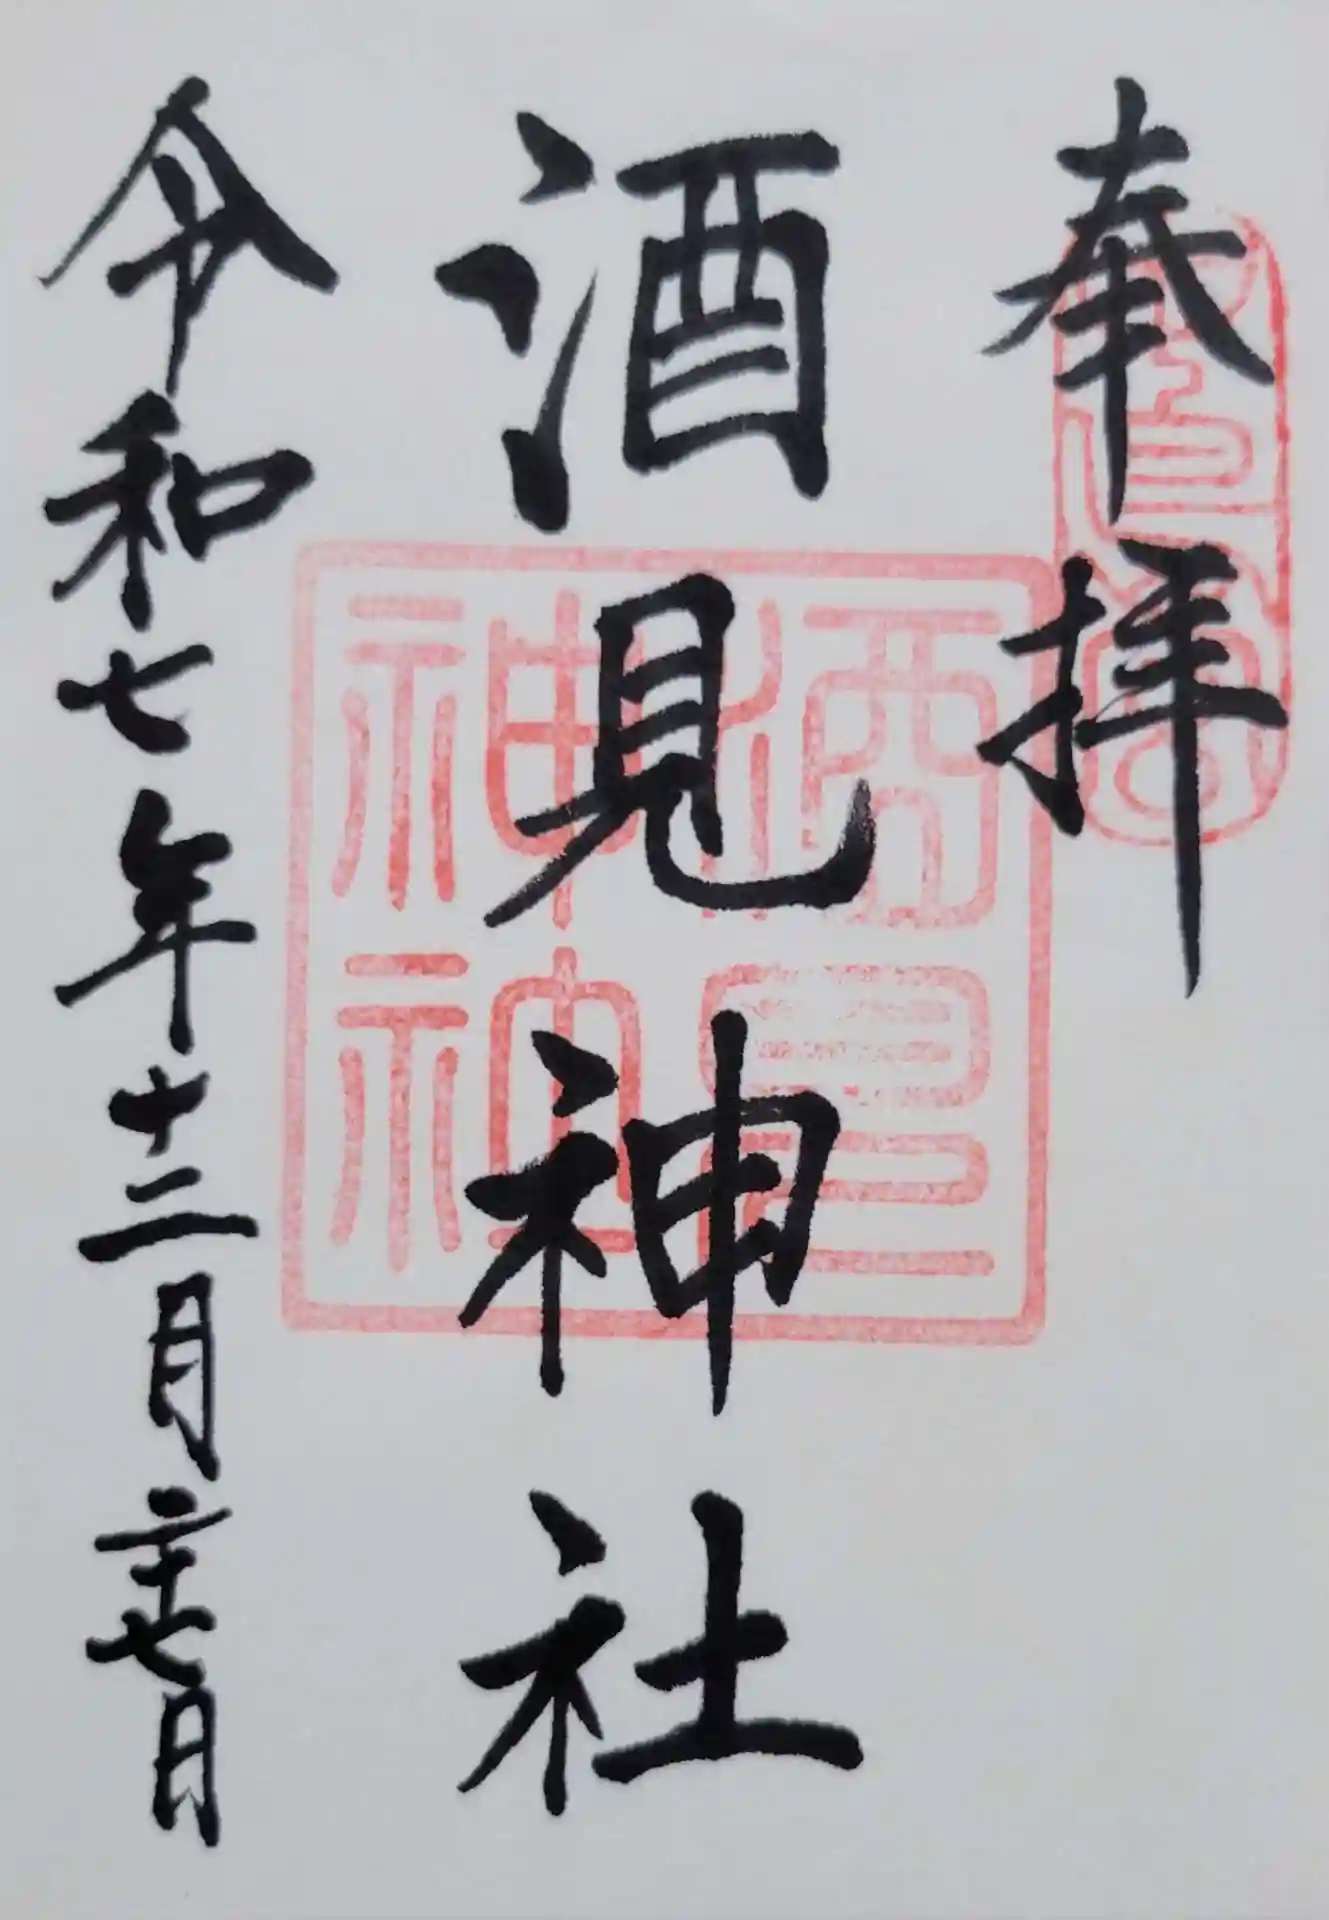 奉拝
酒見神社
令和七年十二月二十七日
酒見神社